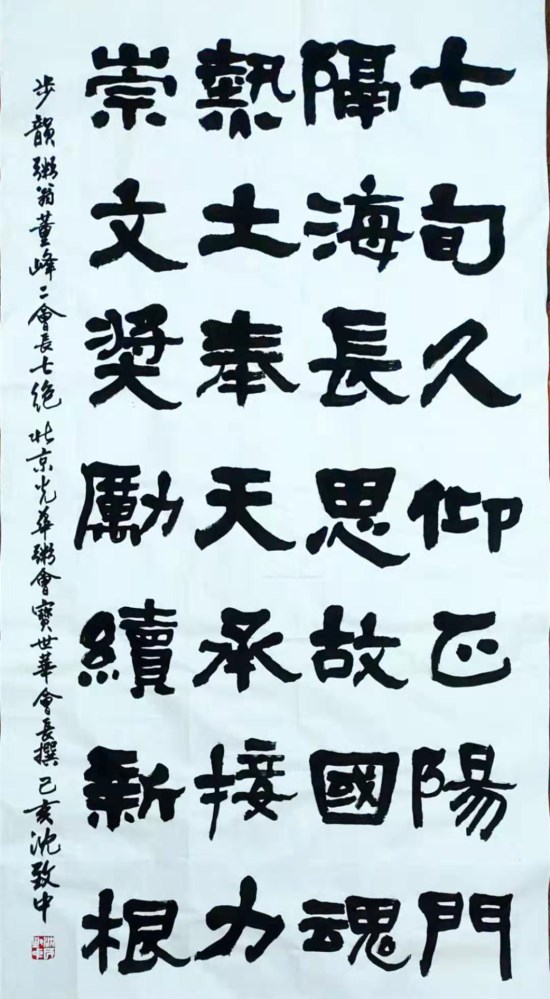 七旬久仰正陽門
隔海長思故國魂
熱土奉天承接力
崇文奬勵續新根
步韻粥翁董峰二會長七絶 北京光華粥會寶世華會長撰 己亥沈致中